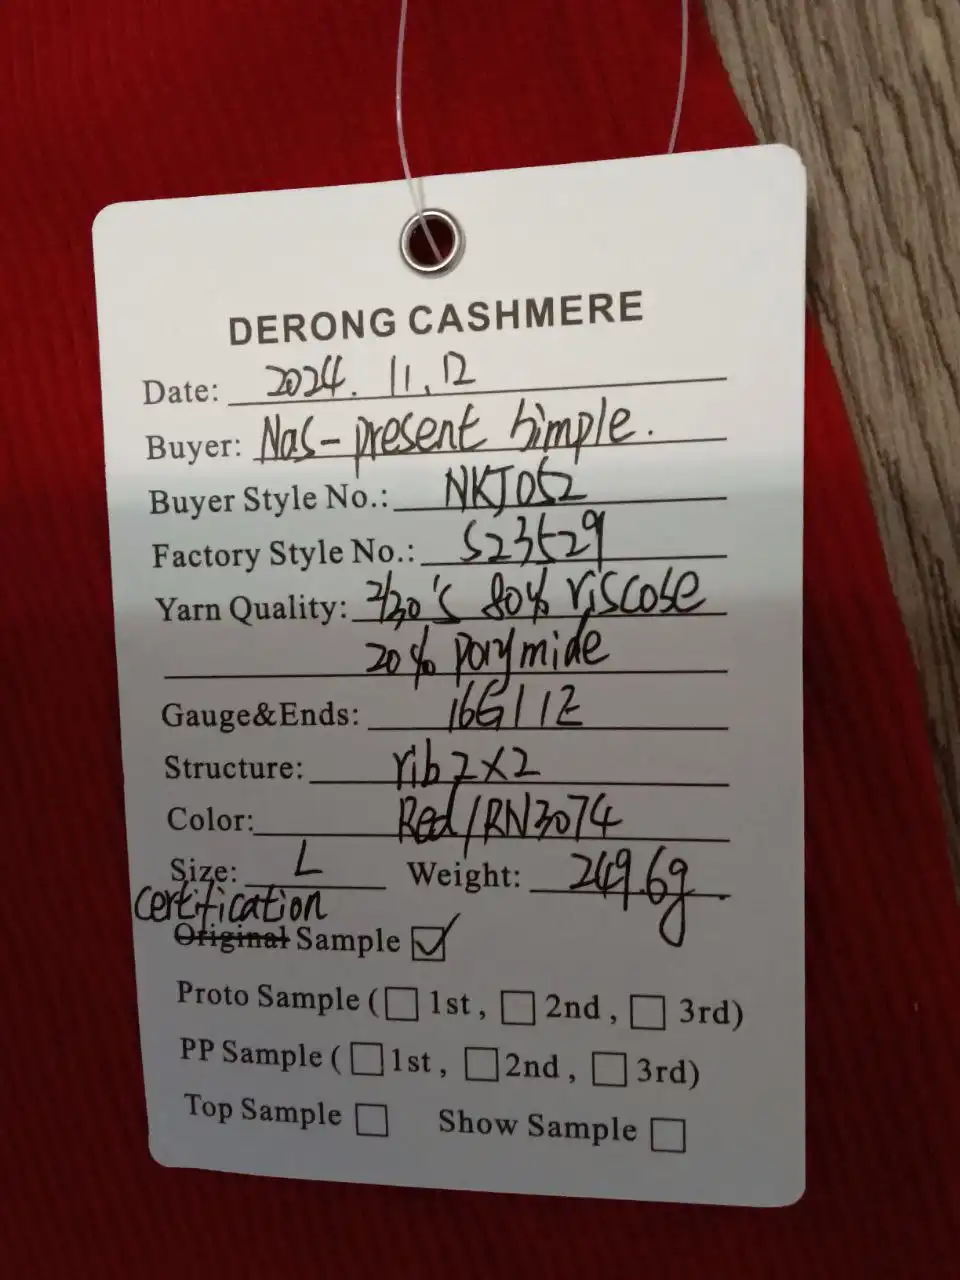 DERONG CASHMERE
Date: 2024. 11. 12
Buyer: Nas-present Simple.
Buyer Style No.: NKJ052
Factory Style No.: S23529
Yarn Quality: 2/30's 80% viscose
20% polymide
Gauge&Ends: 16G 1E
Structure: rib 2X2
Color: Red/RN3074
Size: L Weight: 249.6g
certification
Original Sample ☑
Proto Sample (☐ 1st, ☐ 2nd, ☐ 3rd)
PP Sample (☐ 1st, ☐ 2nd, ☐ 3rd)
Top Sample ☐ Show Sample ☐